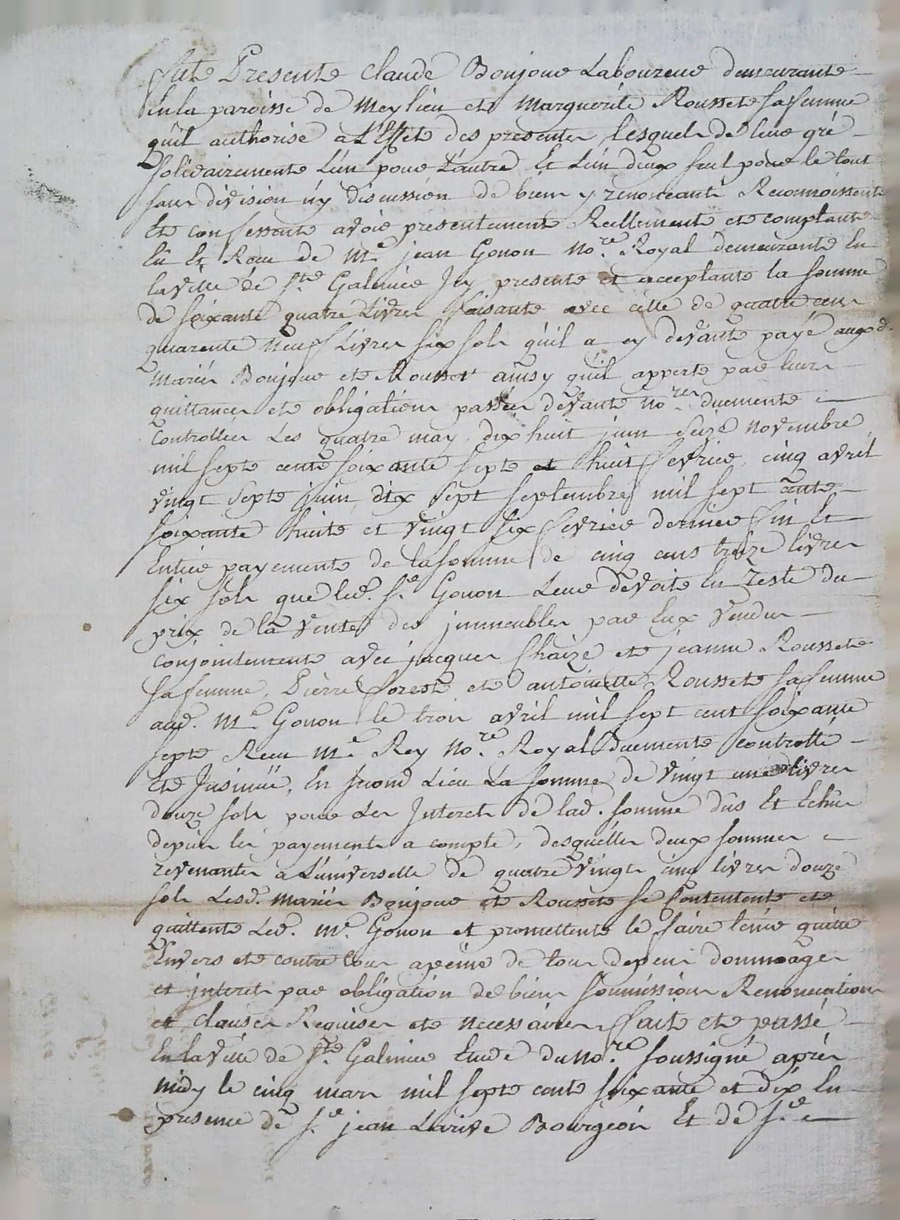 Fute Presente Claude Boujoue Laboureue demeurante
En la paroisse de Meylieu ete Marguerite Roussete sa femme
qu'il authorise a L'Effete des presenter lesquels de leue gré
solidairemente L'un poue L'autre Et L'un deux seul poue le tout
sans division n'y discussion de biens y renonceante Reconnoissente
Ete confessente avoie presentemente Reellemente ete comptante
Eü Et Receu de Me. jean Gonon No.re Royal demeurante En
la ville de Ste. Galmiee Jcy presente et acceptante la somme
de soixante quatre Livres faisante avec celle de quatre cens
quarente neuf Livres six sols qu'il a cy devante payé auxd.
Mariés Boujoue ete Roussete ainsy qu'il apperte pae leurs
quittances ete obligations passées devante No.res duemente
Controllées Les quatre may, dix huit juin seize novembre
mil septe cente soixante septe et huit fevriee, cinq avril
vingt septe juin, dix sept septembre mil sept cente
soixante huite et vingt six fevriee derniee fin Et
Entiee payemente de la somme de cinq cens treize livres
six sols que led. Sr. Gonon Leue devoite En reste du
prix de la vente des jmmeubles pae Eux vendus
conjointemente avec jacques Chaize ete jeanne Roussete
sa femme, Pierre Foreste ete antoinette Roussete sa femme
aud. Me. Gonon le trois avril mil sept cent soixante
septe Receu Me. Rey No.re Royal Duemente controllé
Ete Jnsinué, En second Lieu La somme de vingt une livres
douze sols poue Les Jnterets de lad. somme dûs Et Echûs
depuis les payements a compte, desquelles deux sommes
revenantes a L'universelle de quatre vingt cinq livres douze
sols Lesd. Mariés Boujoue ete Roussete se Contentente ete
quittente Led. Me. Gonon et promettente le faire tenie quitte
Envers ete contre tous apeine de tous depens dommages
et jnterets pae obligation de biens soumissions Renonciations
et clauses Requises ete necessaires faite ete passé
En la ville de Ste. Galmiee Etude du No.re soussigné après
midy le cinq mars mil septe cente soixante et dix En
presence de Sr. jean Larive Bourgeois Et de Sr.